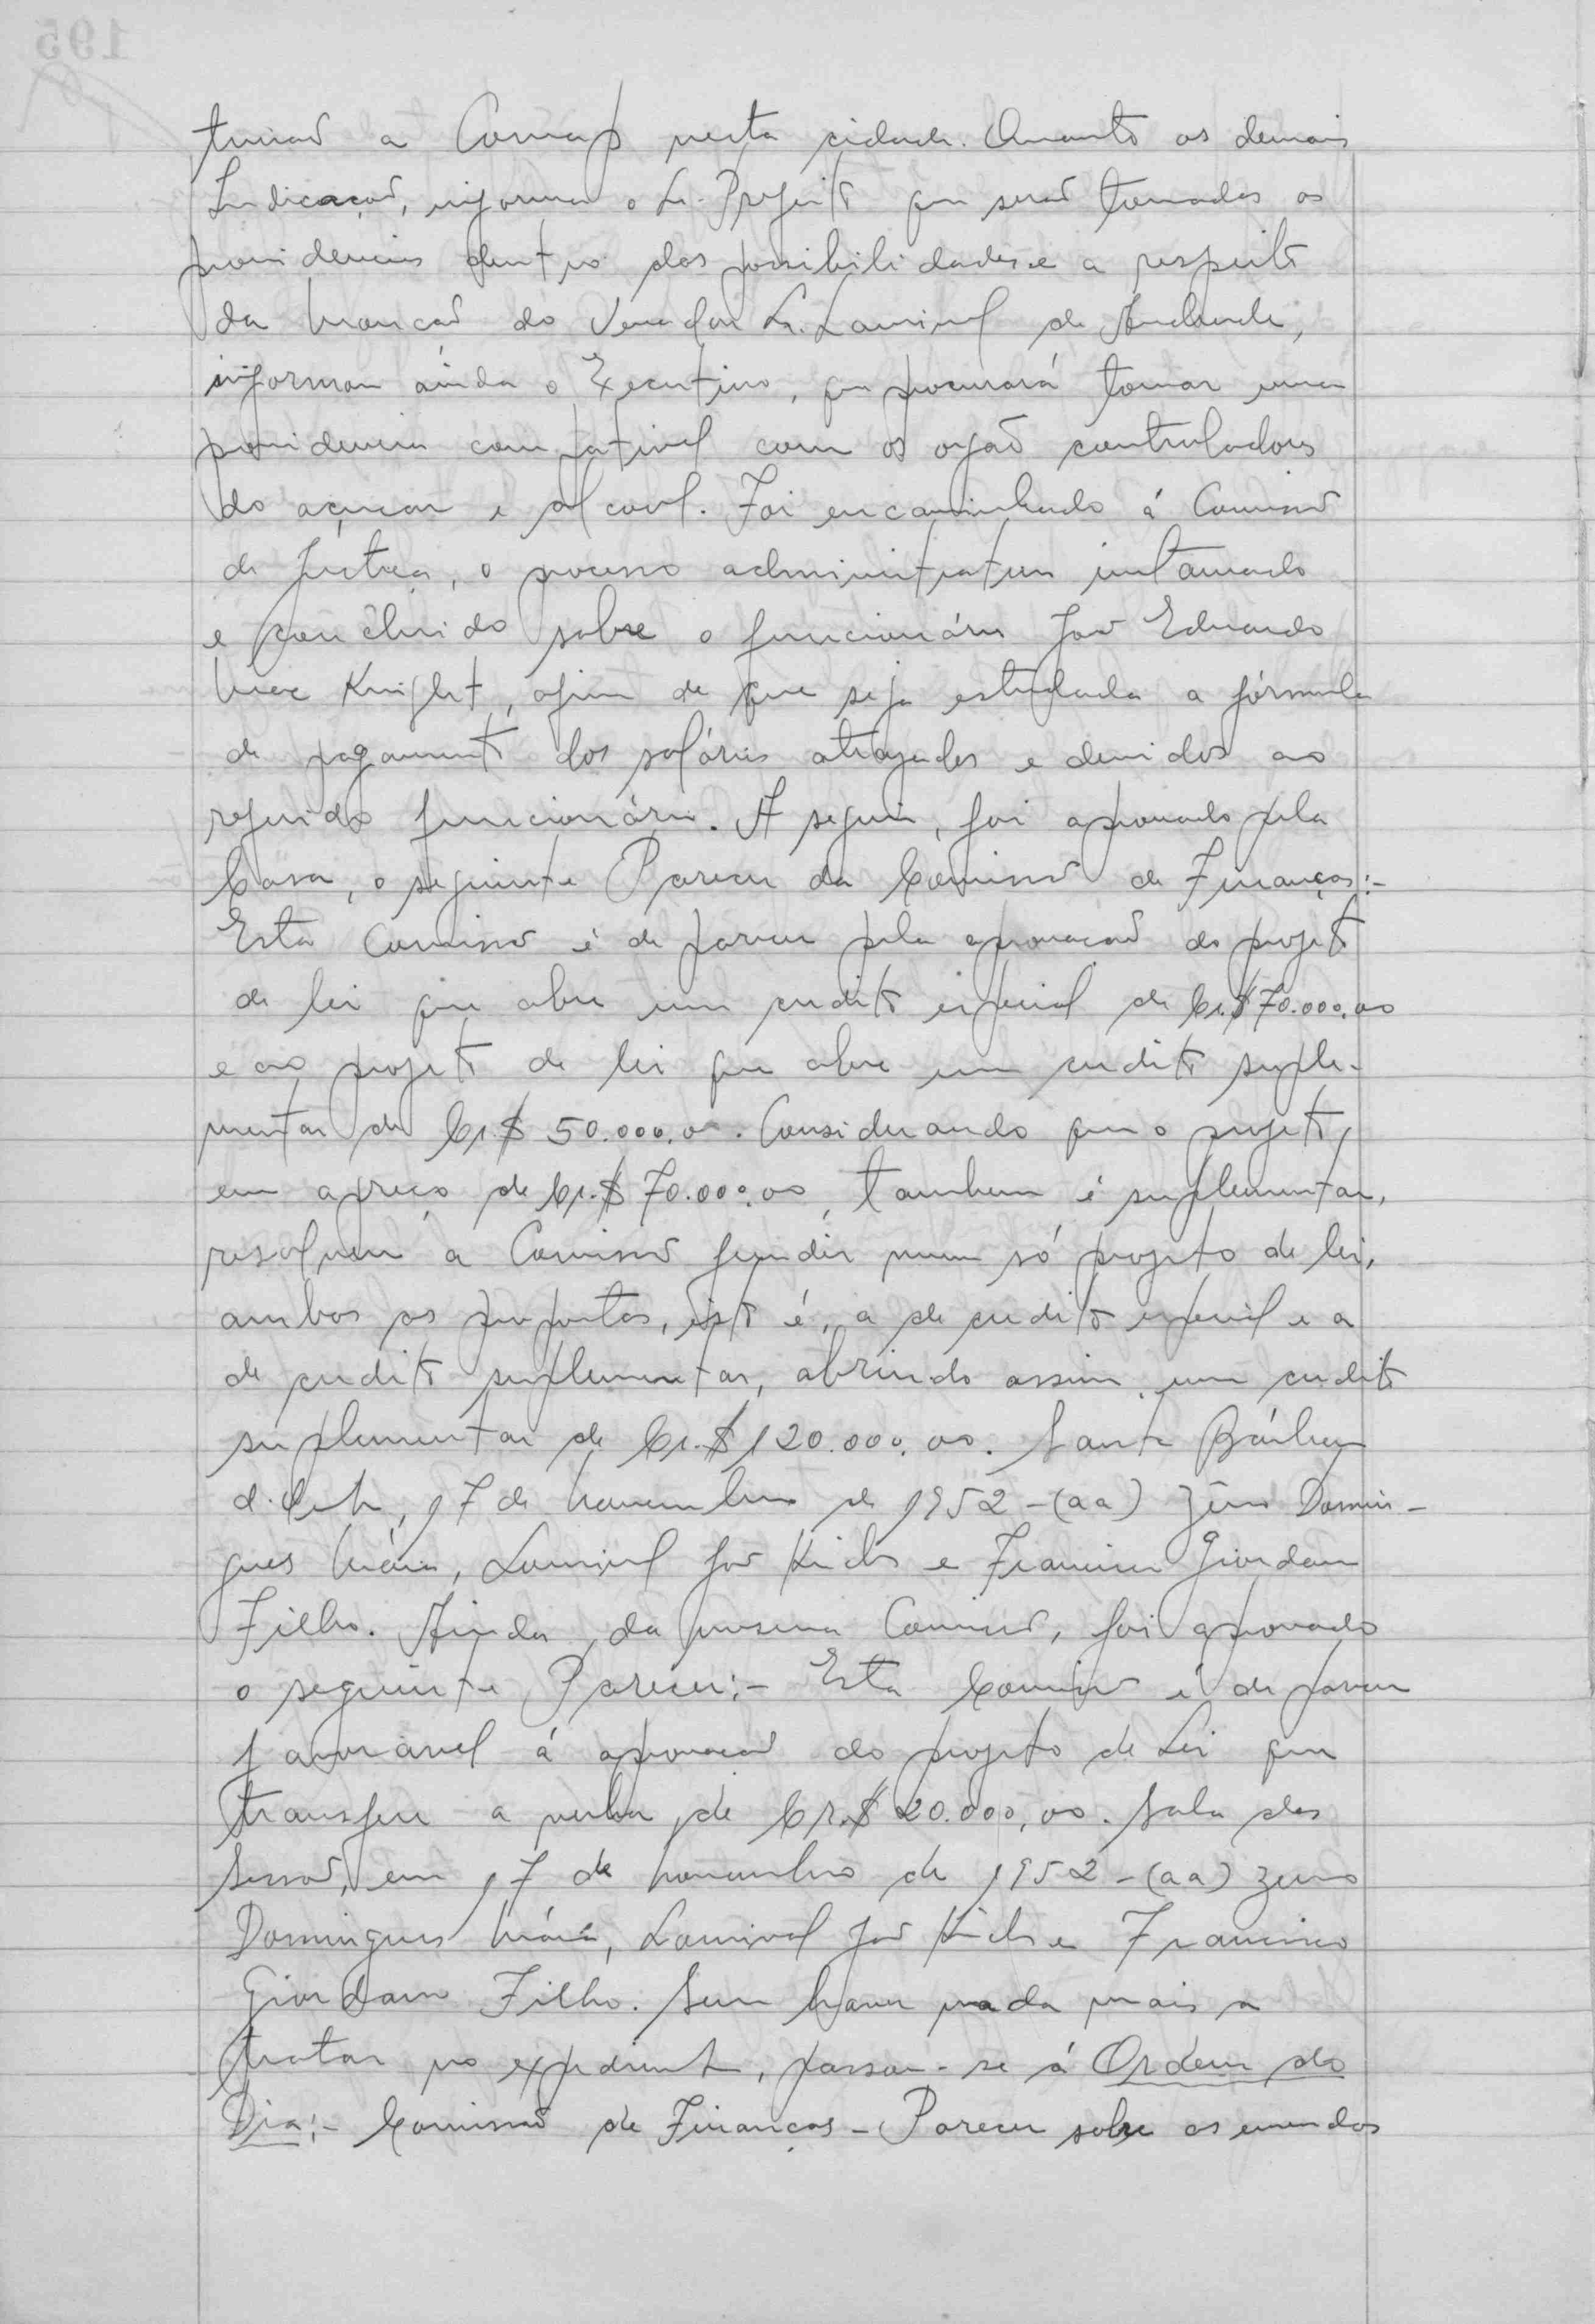 a Comap nesta cidade. Quanto as demais
Indicações, informou o Sr. Prefeito que serão tomadas as
providencias dentro das possibilidades e a respeito
da moção do Vereador Sr. Lourival de Andrade,
informou ainda o Executivo, que procurará tomar uma
providencia compativel com os orgão controladores
do açucar e alcool. Foi encaminhado á Comissão
de Justiça, o processo administrativo instaurado
e concluido sobre o funcionário José Eduardo
Mac Knight, afim de que seja estudada a fórmula
de pagamento dos salários atrazados e devidos ao
referido funcionário. A seguir, foi aprovado pela
Casa, o seguinte Parecer da Comissão de Finanças:-
Esta Comissão é de parecer pela aprovação do projeto
de lei que abre um credito especial de Cr.$ 70.000,00
e ao projeto de lei que abre um credito suple-
mentar de Cr.$ 50.000,00. Considerando que o projeto,
em apreço de Cr.$ 70.000,00, tambem é suplementar,
resolveu a Comissão fundir num só projeto de lei,
ambas as propostas, isto é, a de credito especial e a
de credito suplementar, abrindo assim, um credito
suplementar de Cr.$ 120.000,00. Santa Bárbara
d'Oeste, 17 de novembro de 1952 - (aa) Zêno Domin-
gues Máia, Lourival José e Francisco Giordano
Filho. Ainda, da mesma Comissão, foi aprovado
o seguinte Parecer:- Esta Comissão é de parecer
favorável á aprovação do projeto de Lei que
transfere a verba de Cr.$ 20.000,00. Sala das
Sessões, em 17 de novembro de 1952 - (aa) Zeno
Domingues Máia, Lourival José e Francisco
Giordano Filho. Sem haver nada mais a
tratar no expediente, passou-se á Ordem do
Dia:- Comissão de Finanças - Parecer sobre as emendas